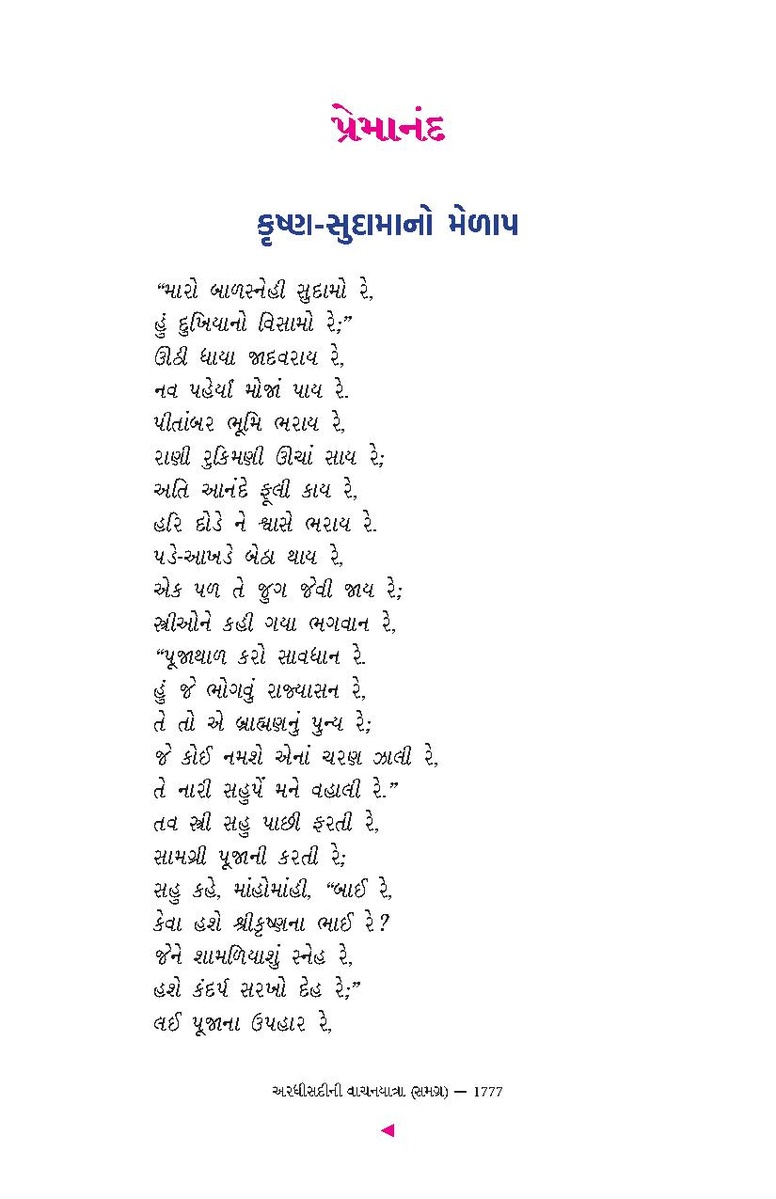 પ્રેમાનંદ
કૃષ્ણ-સુદામાનો મેળાપ
“મારો બાળસ્નેહી સુદામો રે,
હું દુખિયાનો વિસામો રે;”
ઊઠી ધાયા જાદવરાય રે,
નવ પહેર્યાં મોજાં પાય રે.
પીતાંબર ભૂમિ ભરાય રે,
રાણી રુકિમણી ઊચાં સાય રે;
અતિ આનંદે ફૂલી કાય રે,
હરિ દોડે ને શ્વાસે ભરાય રે.
પડે-આખડે બેઠા થાય રે,
એક પળ તે જુગ જેવી જાય રે;
સ્ત્રીઓને કહી ગયા ભગવાન રે,
“પૂજાથાળ કરો સાવધાન રે.
હું જે ભોગવું રાજ્યાસન રે,
તે તો એ બ્રાહ્મણનું પુન્ય રે;
જે કોઈ નમશે એનાં ચરણ ઝાલી રે,
તે નારી સહુપેં મને વહાલી રે.”
તવ સ્ત્રી સહુ પાછી ફરતી રે,
સામગ્રી પૂજાની કરતી રે;
સહુ કહે, માંહોમાંહી, “બાઈ રે,
કેવા હશે શ્રીકૃષ્ણના ભાઈ રે?
જેને શામળિયાશું સ્નેહ રે,
હશે કંદર્પ સરખો દેહ રે;”
લઈ પૂજાના ઉપહાર રે,
અરધીસદીની વાચનયાત્રા (સમગ્ર) — 1777